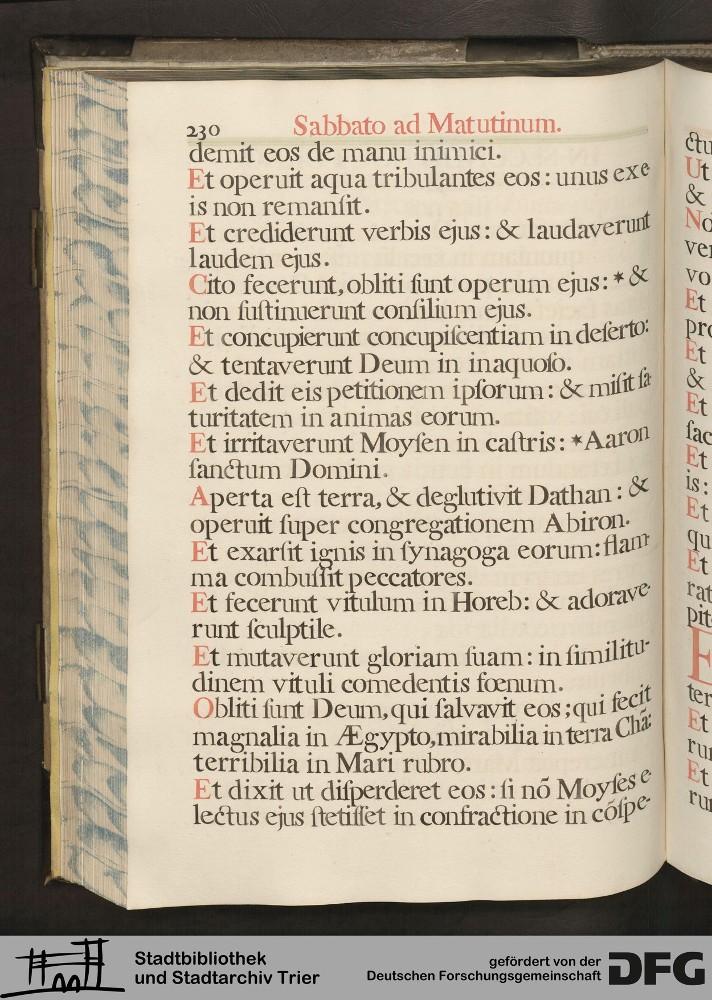 230 Sabbato ad Matutinum.
demit eos de manu inimici.
Et operuit aqua tribulantes eos: unus exe
is non remanſit.
Et crediderunt verbis ejus: & laudaverunt
laudem ejus.
Cito fecerunt, obliti ſunt operum ejus: * &
non ſuſtinuerunt conſilium ejus.
Et concupierunt concupiſcentiam in deſerto:
& tentaverunt Deum in inaquoſo.
Et dedit eis petitionem ipſorum: & miſit ſa-
turitatem in animas eorum.
Et irritaverunt Moyſen in caſtris: * Aaron
ſanctum Domini.
Aperta eſt terra, & deglutivit Dathan: &
operuit ſuper congregationem Abiron.
Et exarſit ignis in ſynagoga eorum: flam-
ma combuſſit peccatores.
Et fecerunt vitulum in Horeb: & adorave-
runt ſculptile.
Et mutaverunt gloriam ſuam: in ſimilitu-
dinem vituli comedentis fœnum.
Obliti ſunt Deum, qui ſalvavit eos; qui fecit
magnalia in Ægypto, mirabilia in terra Chã:
terribilia in Mari rubro.
Et dixit ut diſperderet eos: ſi nõ Moyſes e-
lectus ejus ſtetiſſet in confractione in cõſpe-
ctu
Ut
&
No
ver
vo
Et
pro
Et
&
Et
ſac
Et
is:
Et
qu
Et
rat
pit
E
ter
Et
rur
Et
rur
Stadtbibliothek
und Stadtarchiv Trier
gefördert von der
Deutschen Forschungsgemeinschaft
DFG